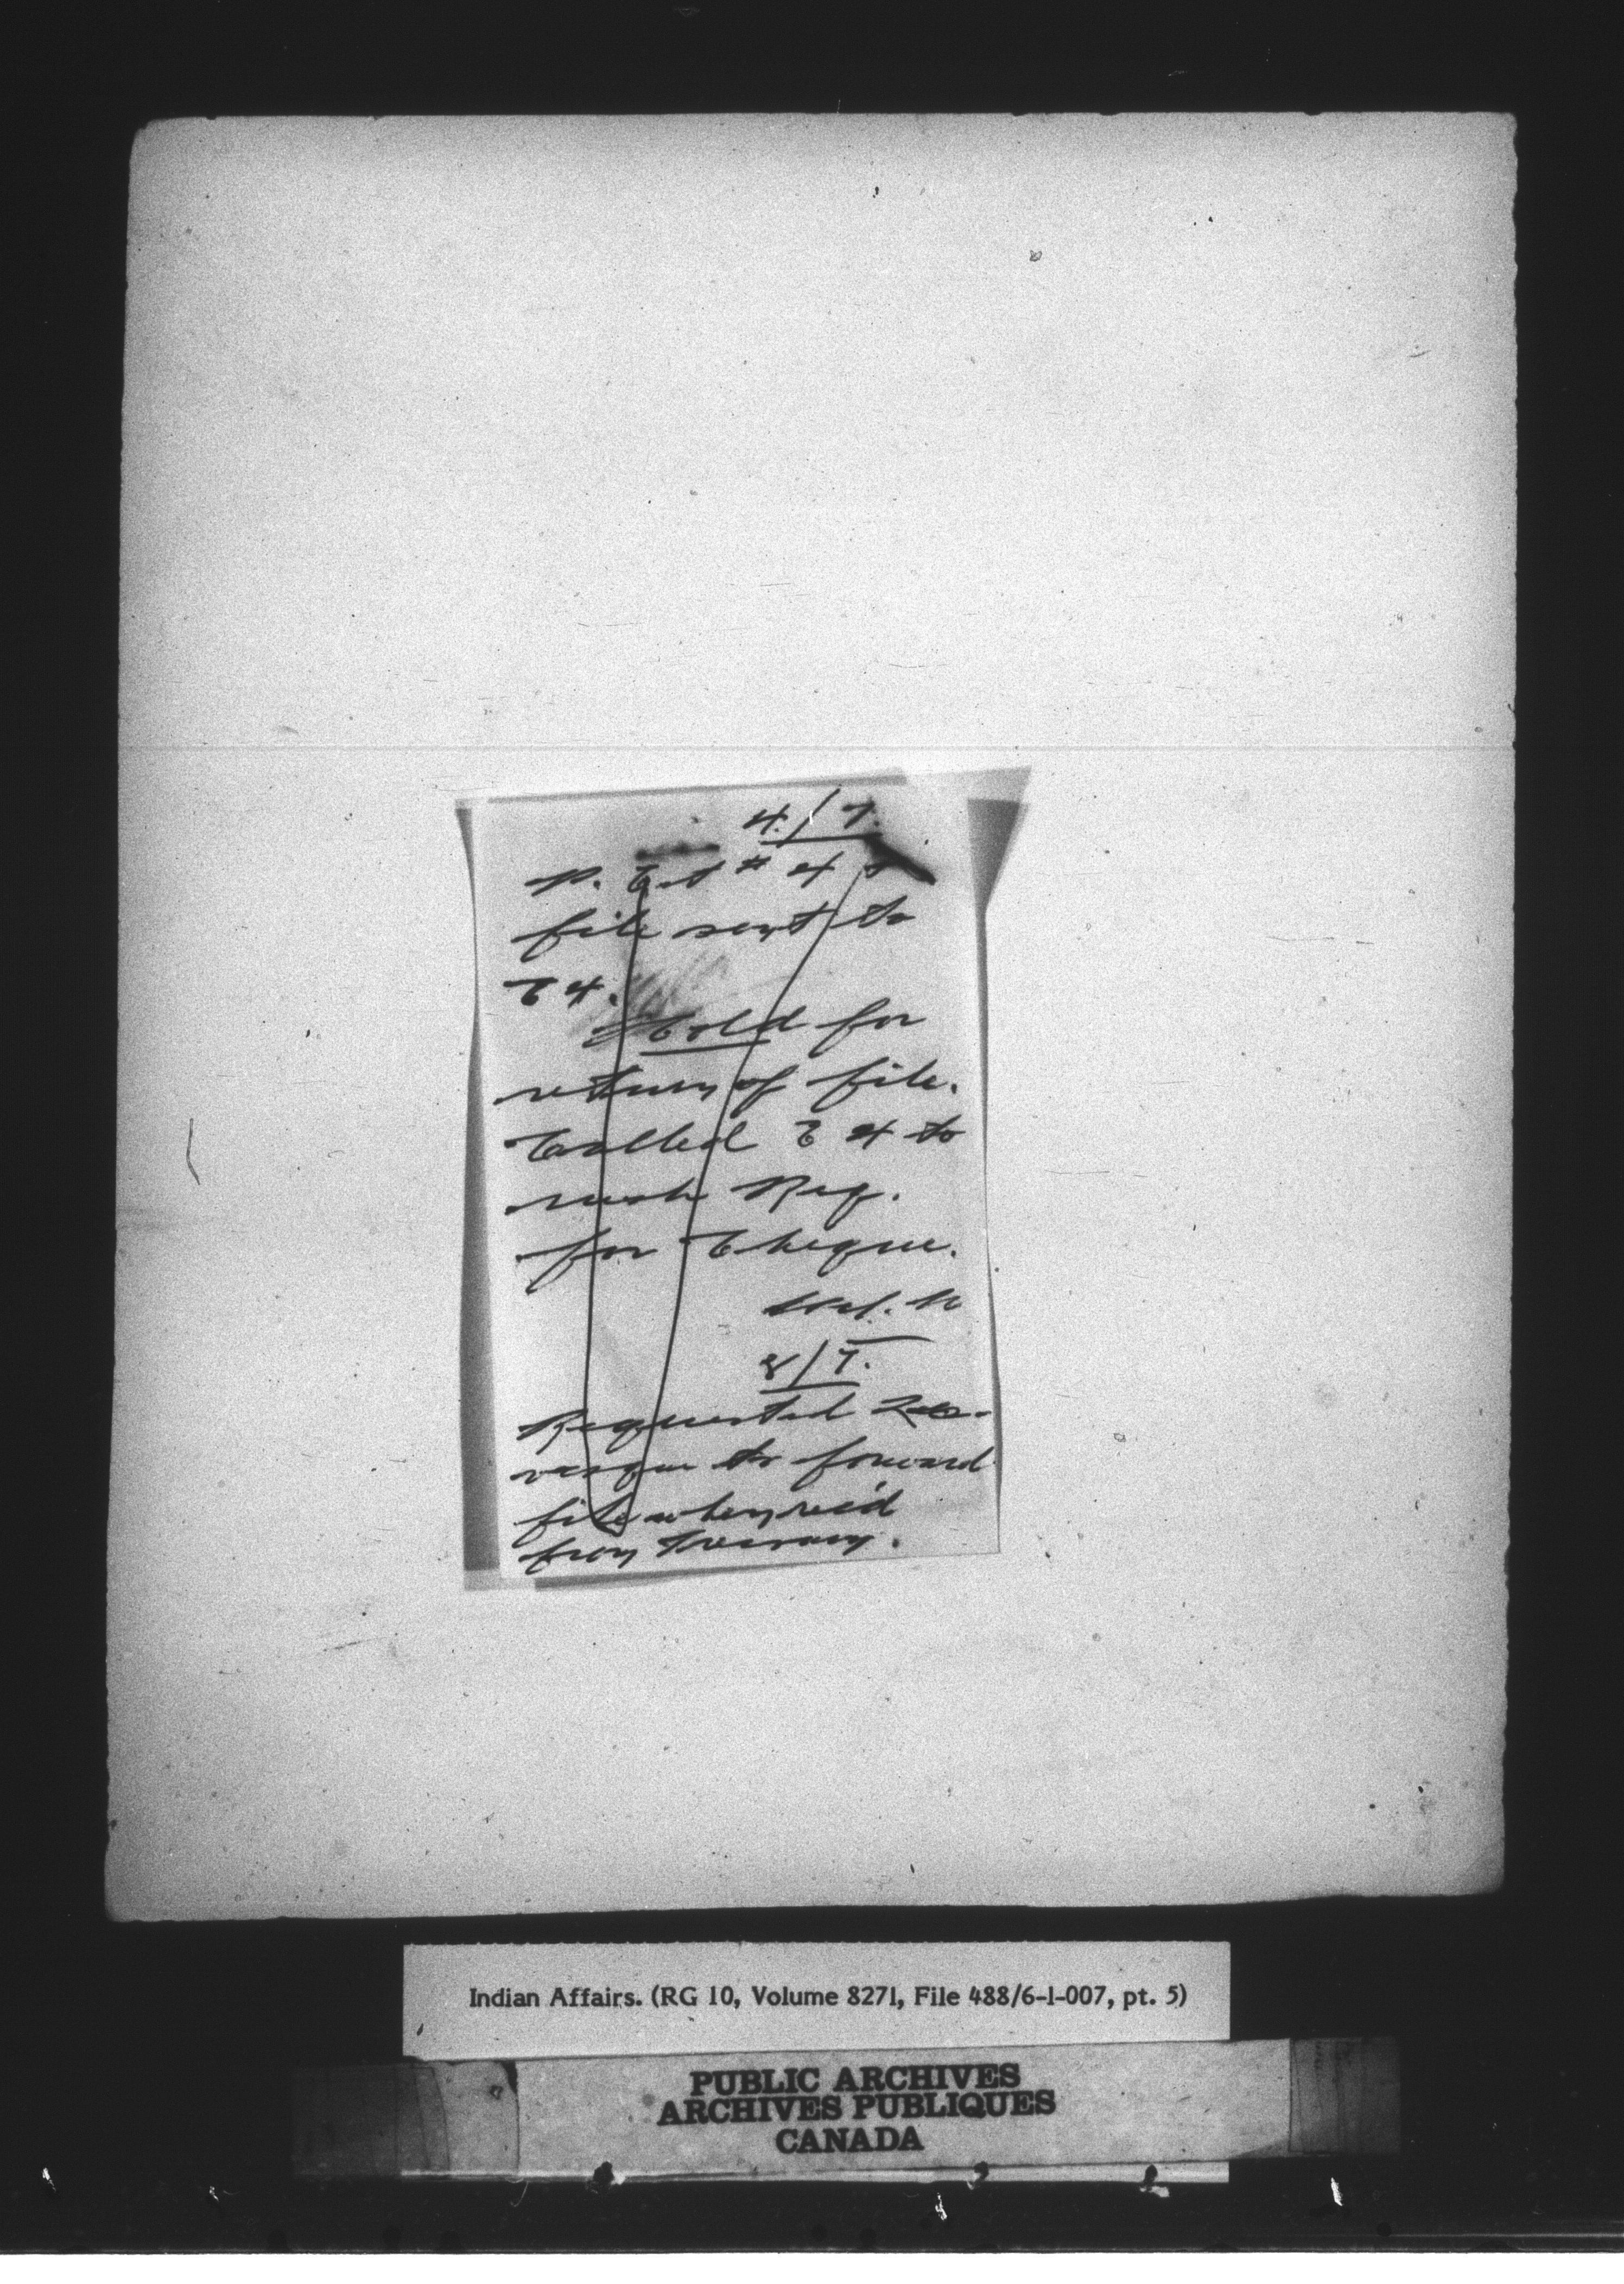 4/7.
P. Est # 4 &
file sent to
E 4.
Hold for
return of file.
Called E 4 to
rush Req.
for Cheque.
8/7.
Requested
to forward
file when rec'd
from Treasury.
Indian Affairs. (RG 10, Volume 8271, File 488/6-1-007, pt. 5)
PUBLIC ARCHIVES
ARCHIVES PUBLIQUES
CANADA